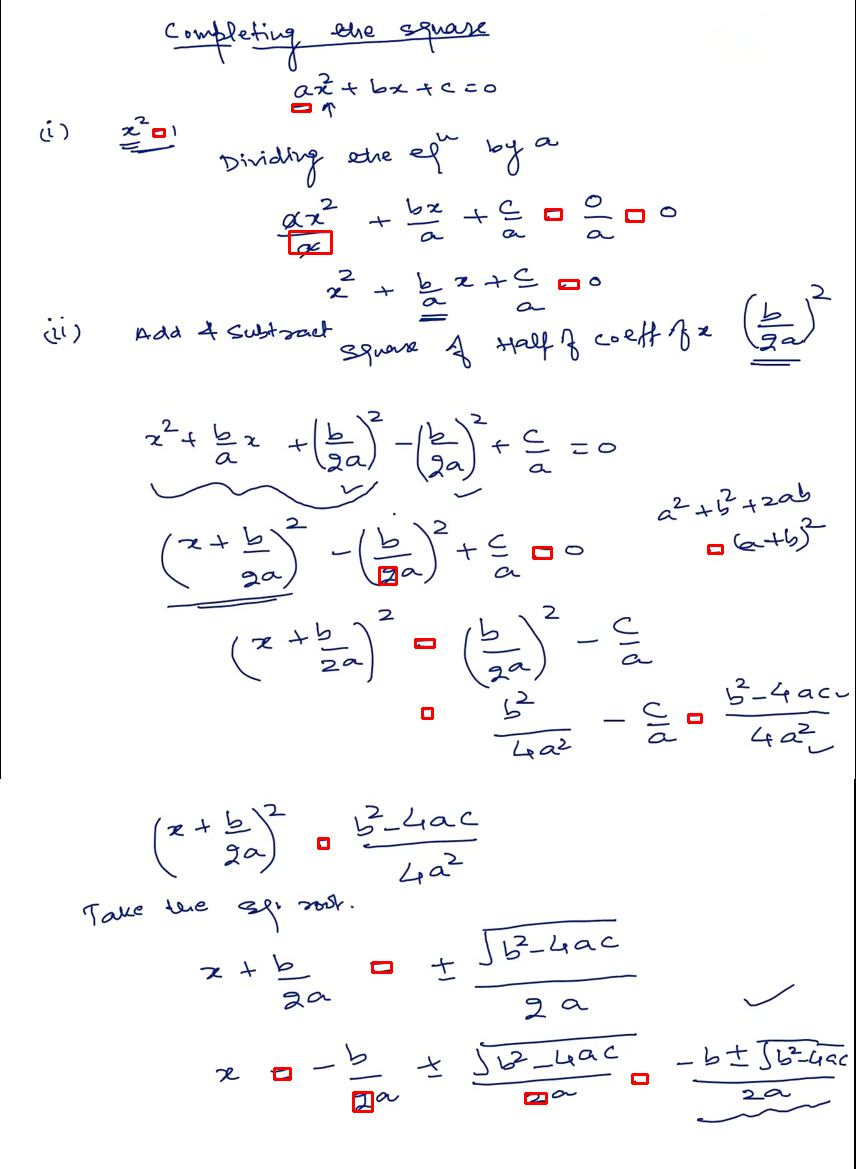 Completing the square
ax² + bx + c = 0
(i) x² = 1
Dividing the eqⁿ by a
ax²/a + bx/a + c/a = 0/a = 0
x² + b/a x + c/a = 0
(ii) Add & Subtract square of Half of coeff of x (b/2a)²
x² + b/a x + (b/2a)² - (b/2a)² + c/a = 0
a² + b² + 2ab
(x + b/2a)² - (b/2a)² + c/a = 0
= (a+b)²
(x + b/2a)² = (b/2a)² - c/a
= b²/4a² - c/a = b²-4ac/4a²
(x + b/2a)² = b²-4ac/4a²
Take the sq. root.
x + b/2a = ± √b²-4ac/2a
x = -b/2a ± √b²-4ac/2a = -b±√b²-4ac/2a